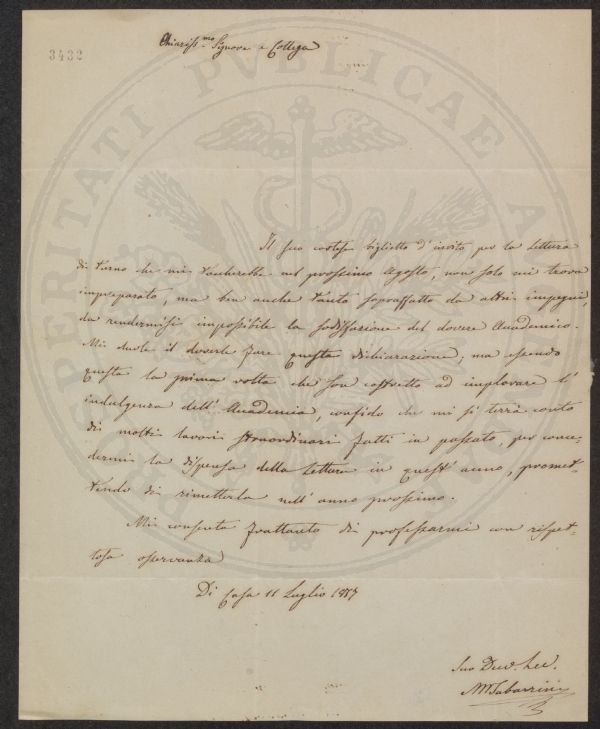 3432
Chiariss.mo Signore e Collega
Il suo cortese biglietto d'invito per la Lettura
di turno che mi toccherebbe nel prossimo Agosto, non solo mi trova
impreparato, ma ben anche tanto sopraffatto da altri impegni,
da rendermisi impossibile la sodisfazione del dovere Accademico.
Mi duole il doverle fare questa dichiarazione, ma essendo
questa la prima volta che son costretto ad implorare l'
indulgenza dell'Accademia, confido che mi si terrà conto
di molti lavori straordinari fatti in passato, per conce-
dermi la dispensa della Lettura in quest'anno, promet-
tendo di rimetterla nell'anno prossimo.
Mi consenta frattanto di professarmi con rispet-
tosa osservanza
Di Casa 11 Luglio 1877
Suo Dev.
M Tabarrini
PROSPERITATI PVBLICAE A